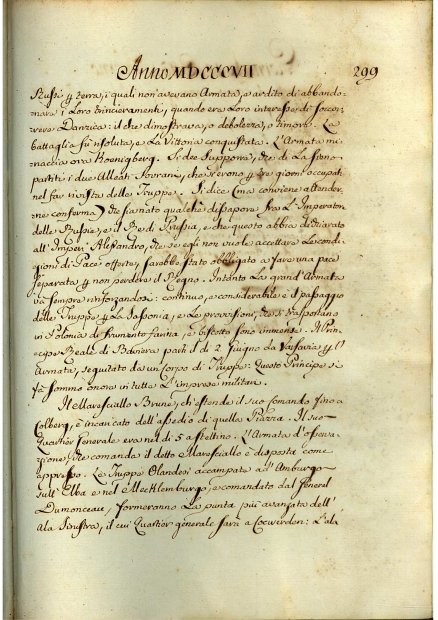 Anno MDCCCVII 299
Russi p terra, i quali non avevano Armata, o ardito di abbando-
nare i Loro trincieramenti, quando era Loro interesse di soccor-
rere Danzica: il che dimostrava, o debolezza, o timore. La
battaglia fù risoluta, e La Vittoria conquistata. L'Armata mi-
naccia ora Koenigberg. Si dee supporre, che di La sieno
partiti i due Alleati Sovrani, che v'erono p tre giorni occupati
nel far rivista delle Truppe. Si dice (ma conviene attender-
ne conferma) che sia nato qualche dissapore fra L'Imperator
delle Russie, e il Re di Prussia, e che questo abbia dichiarato
all'Imper: Alesandro, che se egli non vuole accettare Le condi-
zioni di Pace offerte, sarebbe stato obbligato a fare una pace
separata p non perdere il Regno. Intanto La grand'Armata
va sempre rinforzandosi: continuo, e considerabile è il passaggio
delle Truppe p La Sassonia, e Le provvisioni, che si trasportano
in Polonia di frumento farina, e biscotto sono immense. Il Prin-
cipe Reale di Baviera partì il dì 2 Giugno da Varsavia p l'
Armata, seguitato da un Corpo di Truppe: Questo Principe si
fà sommo onore in tutte L'imprese militari.
Il Maresciallo Brune, ch'estende il suo comando fino a
Colberg, è incaricato dell'assedio di quella Piazza. Il suo
Quartier Generale era nel dì 5 a Stettino. L'Armata d'osserva-
zione, che comanda il detto Maresciallo è disposta come
appresso. Le Truppe Olandesi accampate a L'Amburgo
sull'Elba e nel Mecklemburgo, e comandato dal General
Dumonceau, formeranno La punta più avanzata dell'
Ala Sinistra, il cui Quartier generale sarà a Coewerden: L'ala